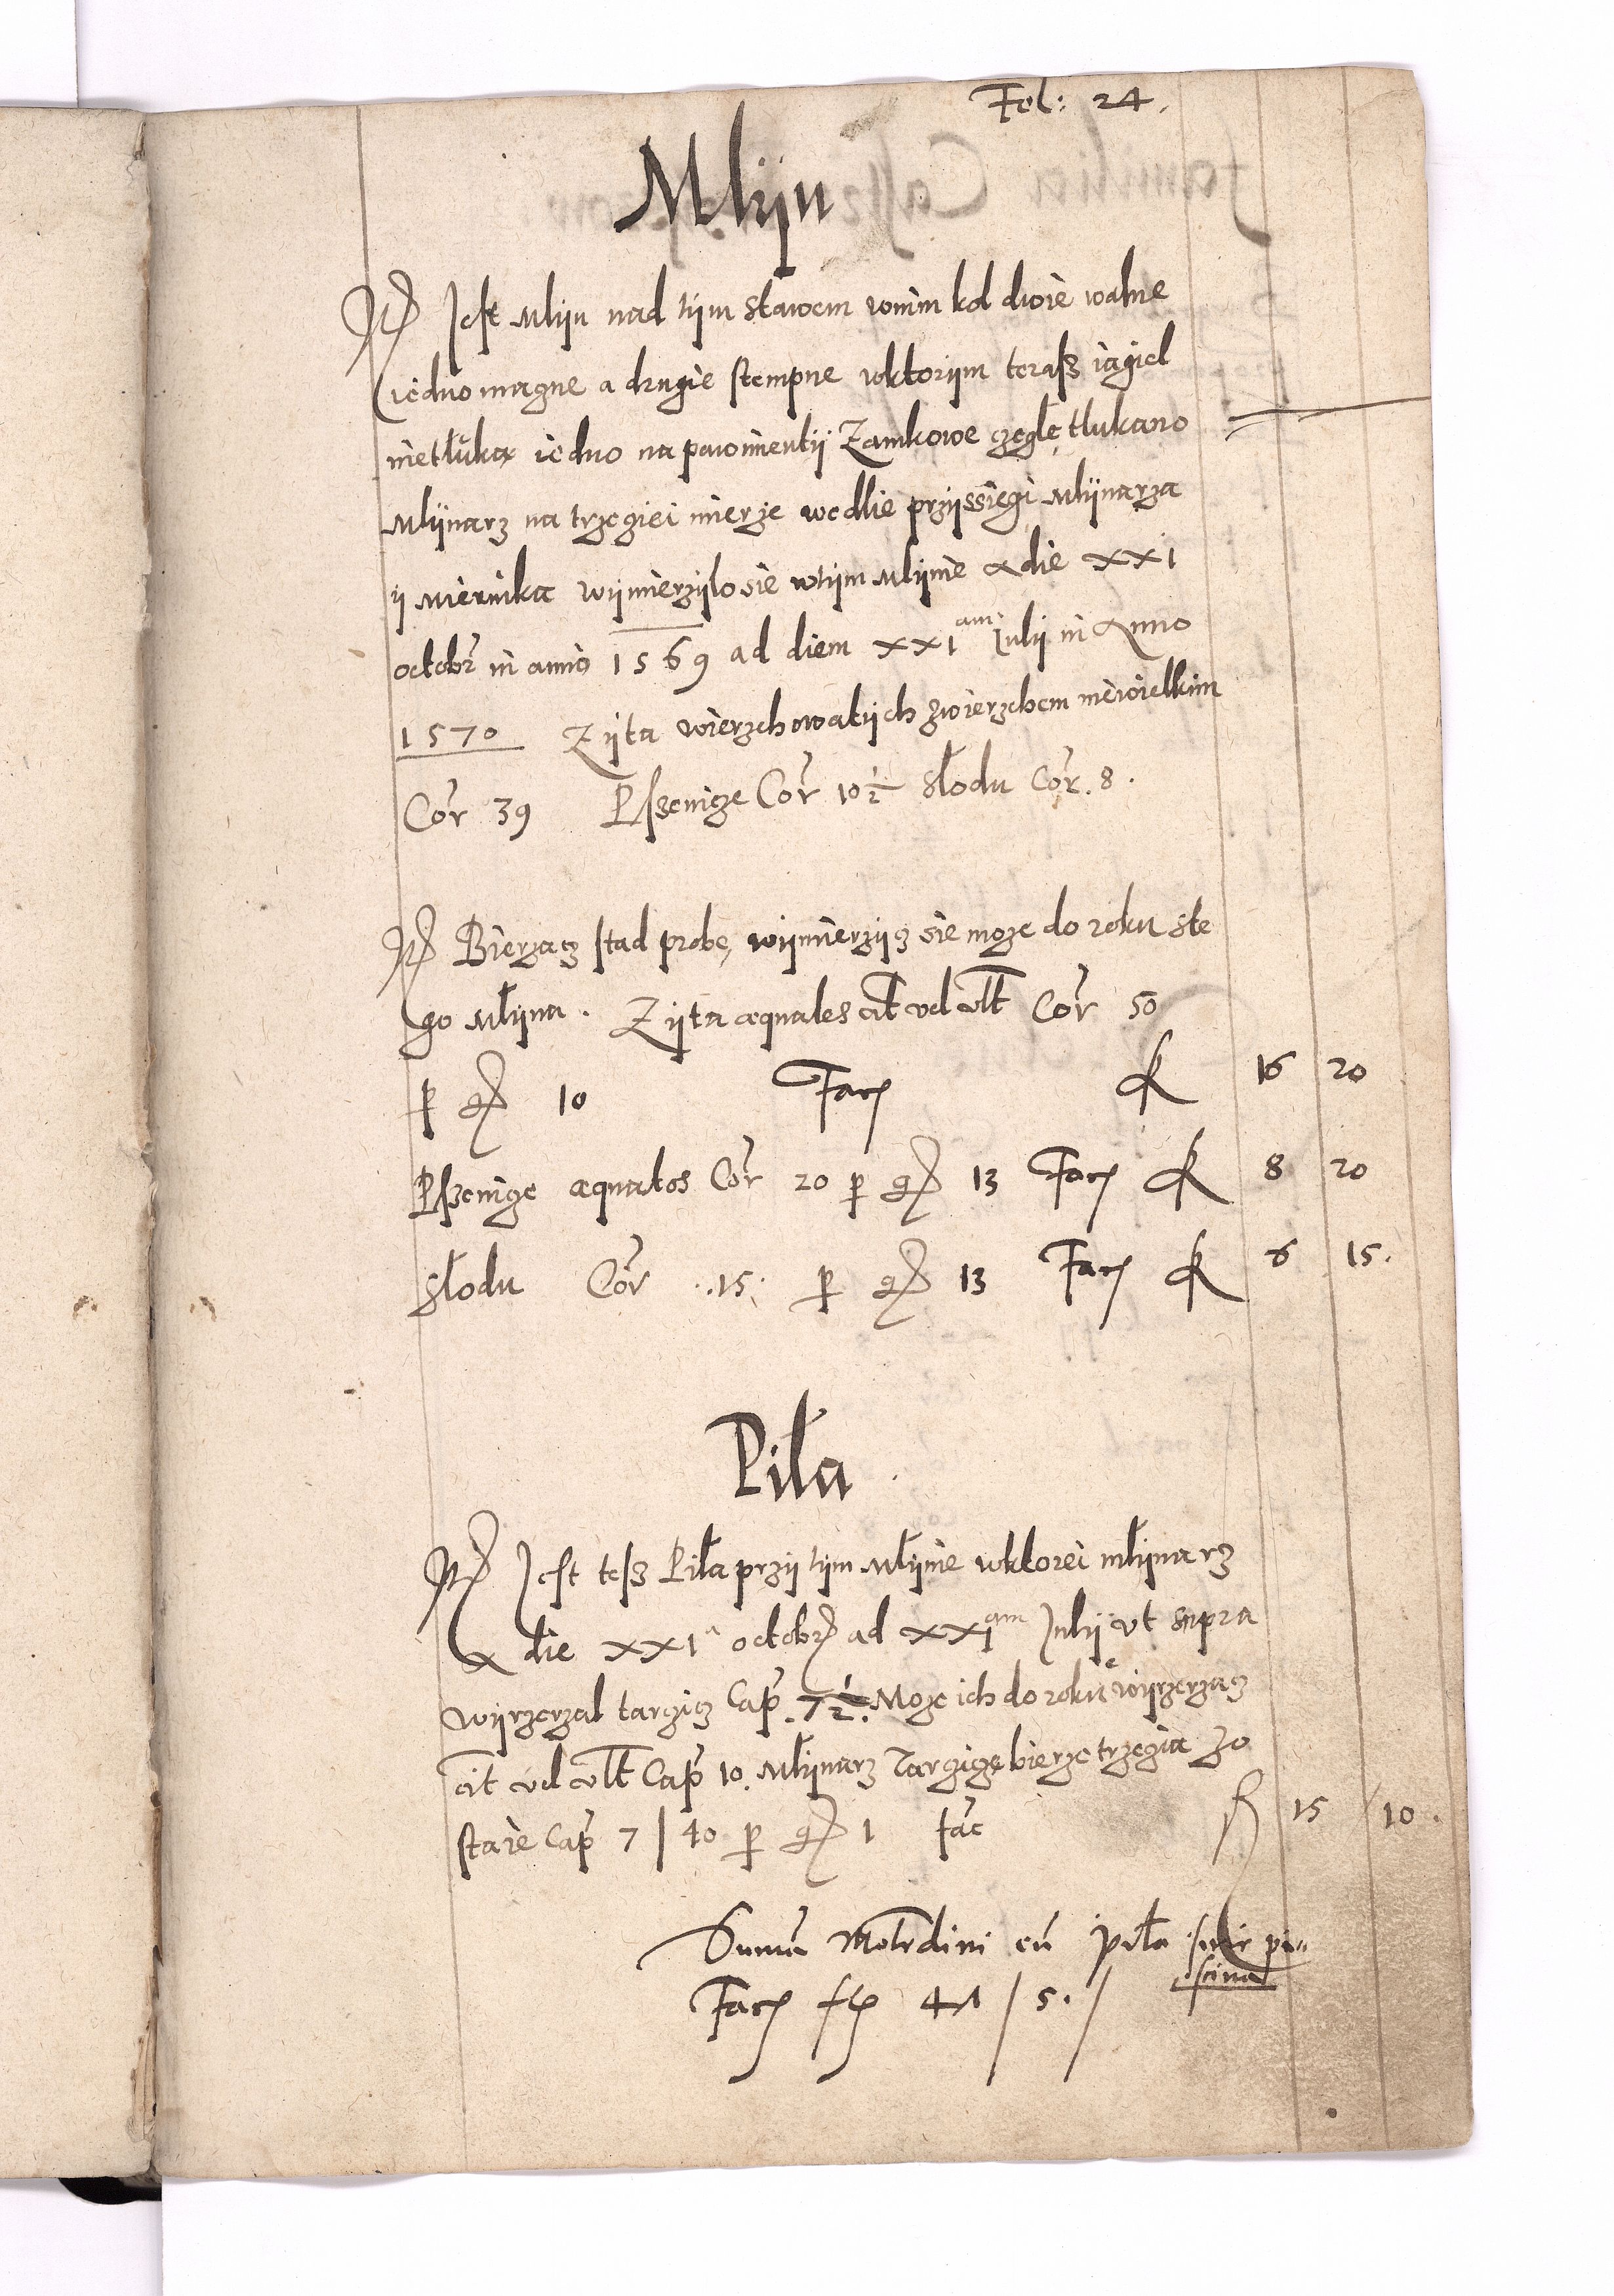 Fol: 24.
Mlÿn
Jest Mlÿn nad tÿm stawem wnim kol dwie walne
iedno mączne a drugie stempne wktorÿm terasz iagiel
nietluką iedno na pawimentÿ Zamkowe czeglę tlukano
Mlÿnarz na trzeciei mierze wedlie przÿssiegi Mlÿnarza
ÿ Miernika wÿmierzÿlo sie wtÿm Mlÿnie a die XXI
octobr in anno 1569 ad diem XXI am Julÿ in Anno
1570 Zÿta wierzchowatÿch zwierzchem niewielkim
Cor 39 Pszenicze Cor 10 ½ Słodu Cor. 8.
Bierzącz stad probę, wÿmierzÿcz sie moze do roku ste
go Młÿna. Zÿta æquales ait vel vlt Cor 50
p 10 Fac 16 20
Pszenicze æquatos Cor 20 p 13 Fac 8 20
Słodu Cor .15. p 13 Fac 6 15.
Piła
Jest tesz Piła przÿ tÿm Młÿnie wktorei młÿnarz
a die XXI a octobr ad XXI am Julÿ vt supra
wÿrzezal tarcicz Cap. 7½. Moze ich do roku wÿrzezacz
ait vel vlt Cap 10. Młÿnarz Tarcicze bierze trzecia zo
staie Cap 7 / 40 p 1 fac 15 10.
Summa Molendini cu piła pi=
scina
Fac 41 / 5. /